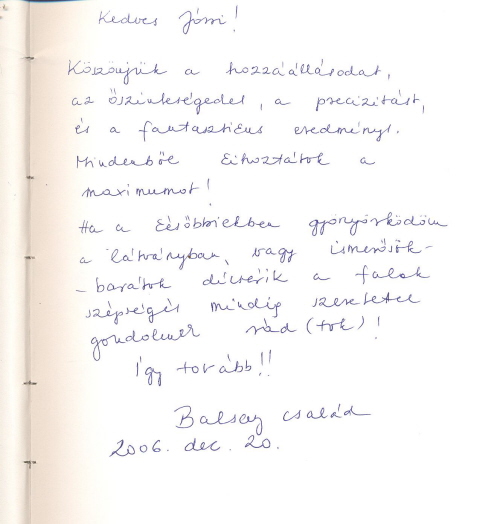 Kedves Józsi!
Köszönjük a hozzáállásodat,
az őszinteségedet, a precizitást,
és a fantasztikus eredményt.
Mindenből kihoztátok a
maximumot!
Ha a későbbiekben gyönyörködöm
a látványban, vagy ismerősök-
-barátok dícsérik a falak
szépségét mindig szeretettel
gondolunk rád (tok)!
Így tovább!!
család
2006. dec. 20.